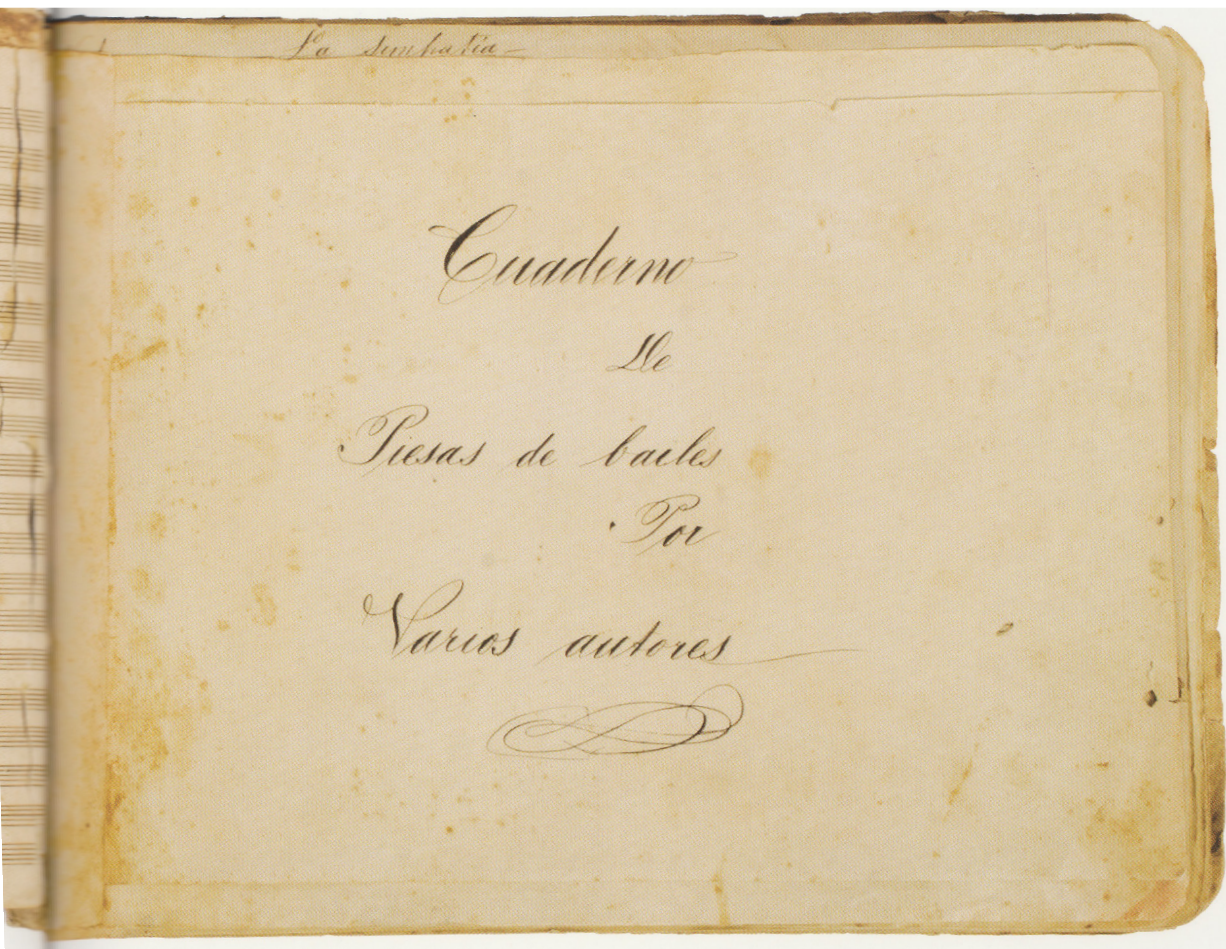 La simpatia
Cuaderno
De
Piesas de bailes
Por
Varios autores